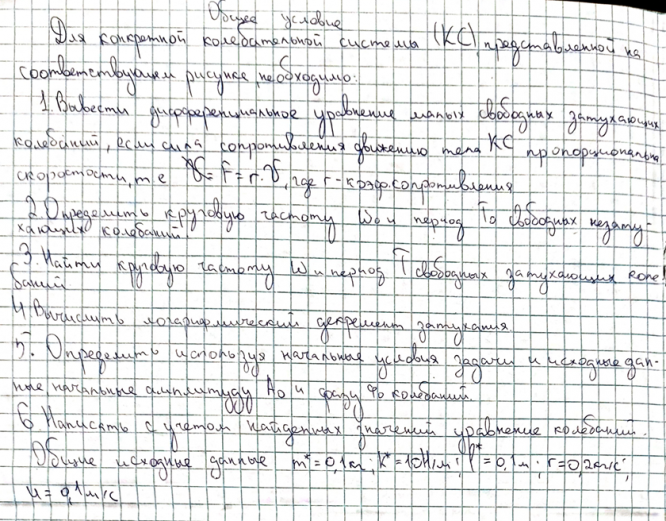 Общее условие
Для конкретной колебательной системы (КС), представленной на
соответствующем рисунке, необходимо:
1. Вывести дифференциальное уравнение малых свободных затухающих
колебаний, если сила сопротивления движению тела КС пропорциональна
скорости, т е F = r·V, где r - коэф. сопротивления
2 Определить круговую частоту ω₀ и период T₀ свободных незату-
хающих колебаний.
3 Найти круговую частоту ω и период T свободных затухающих коле
баний
4 Вычислить логарифмический декремент затухания
5. Определить используя начальные условия задачи и исходные дан-
ные начальные амплитуду A₀ и фазу φ₀ колебаний.
6 Написать с учетом найденных значений уравнение колебаний.
Общие исходные данные m* = 0,1кг; k* = 10Н/м; l* = 0,1м; r = 0,2кг/с;
u = 0,1м/с